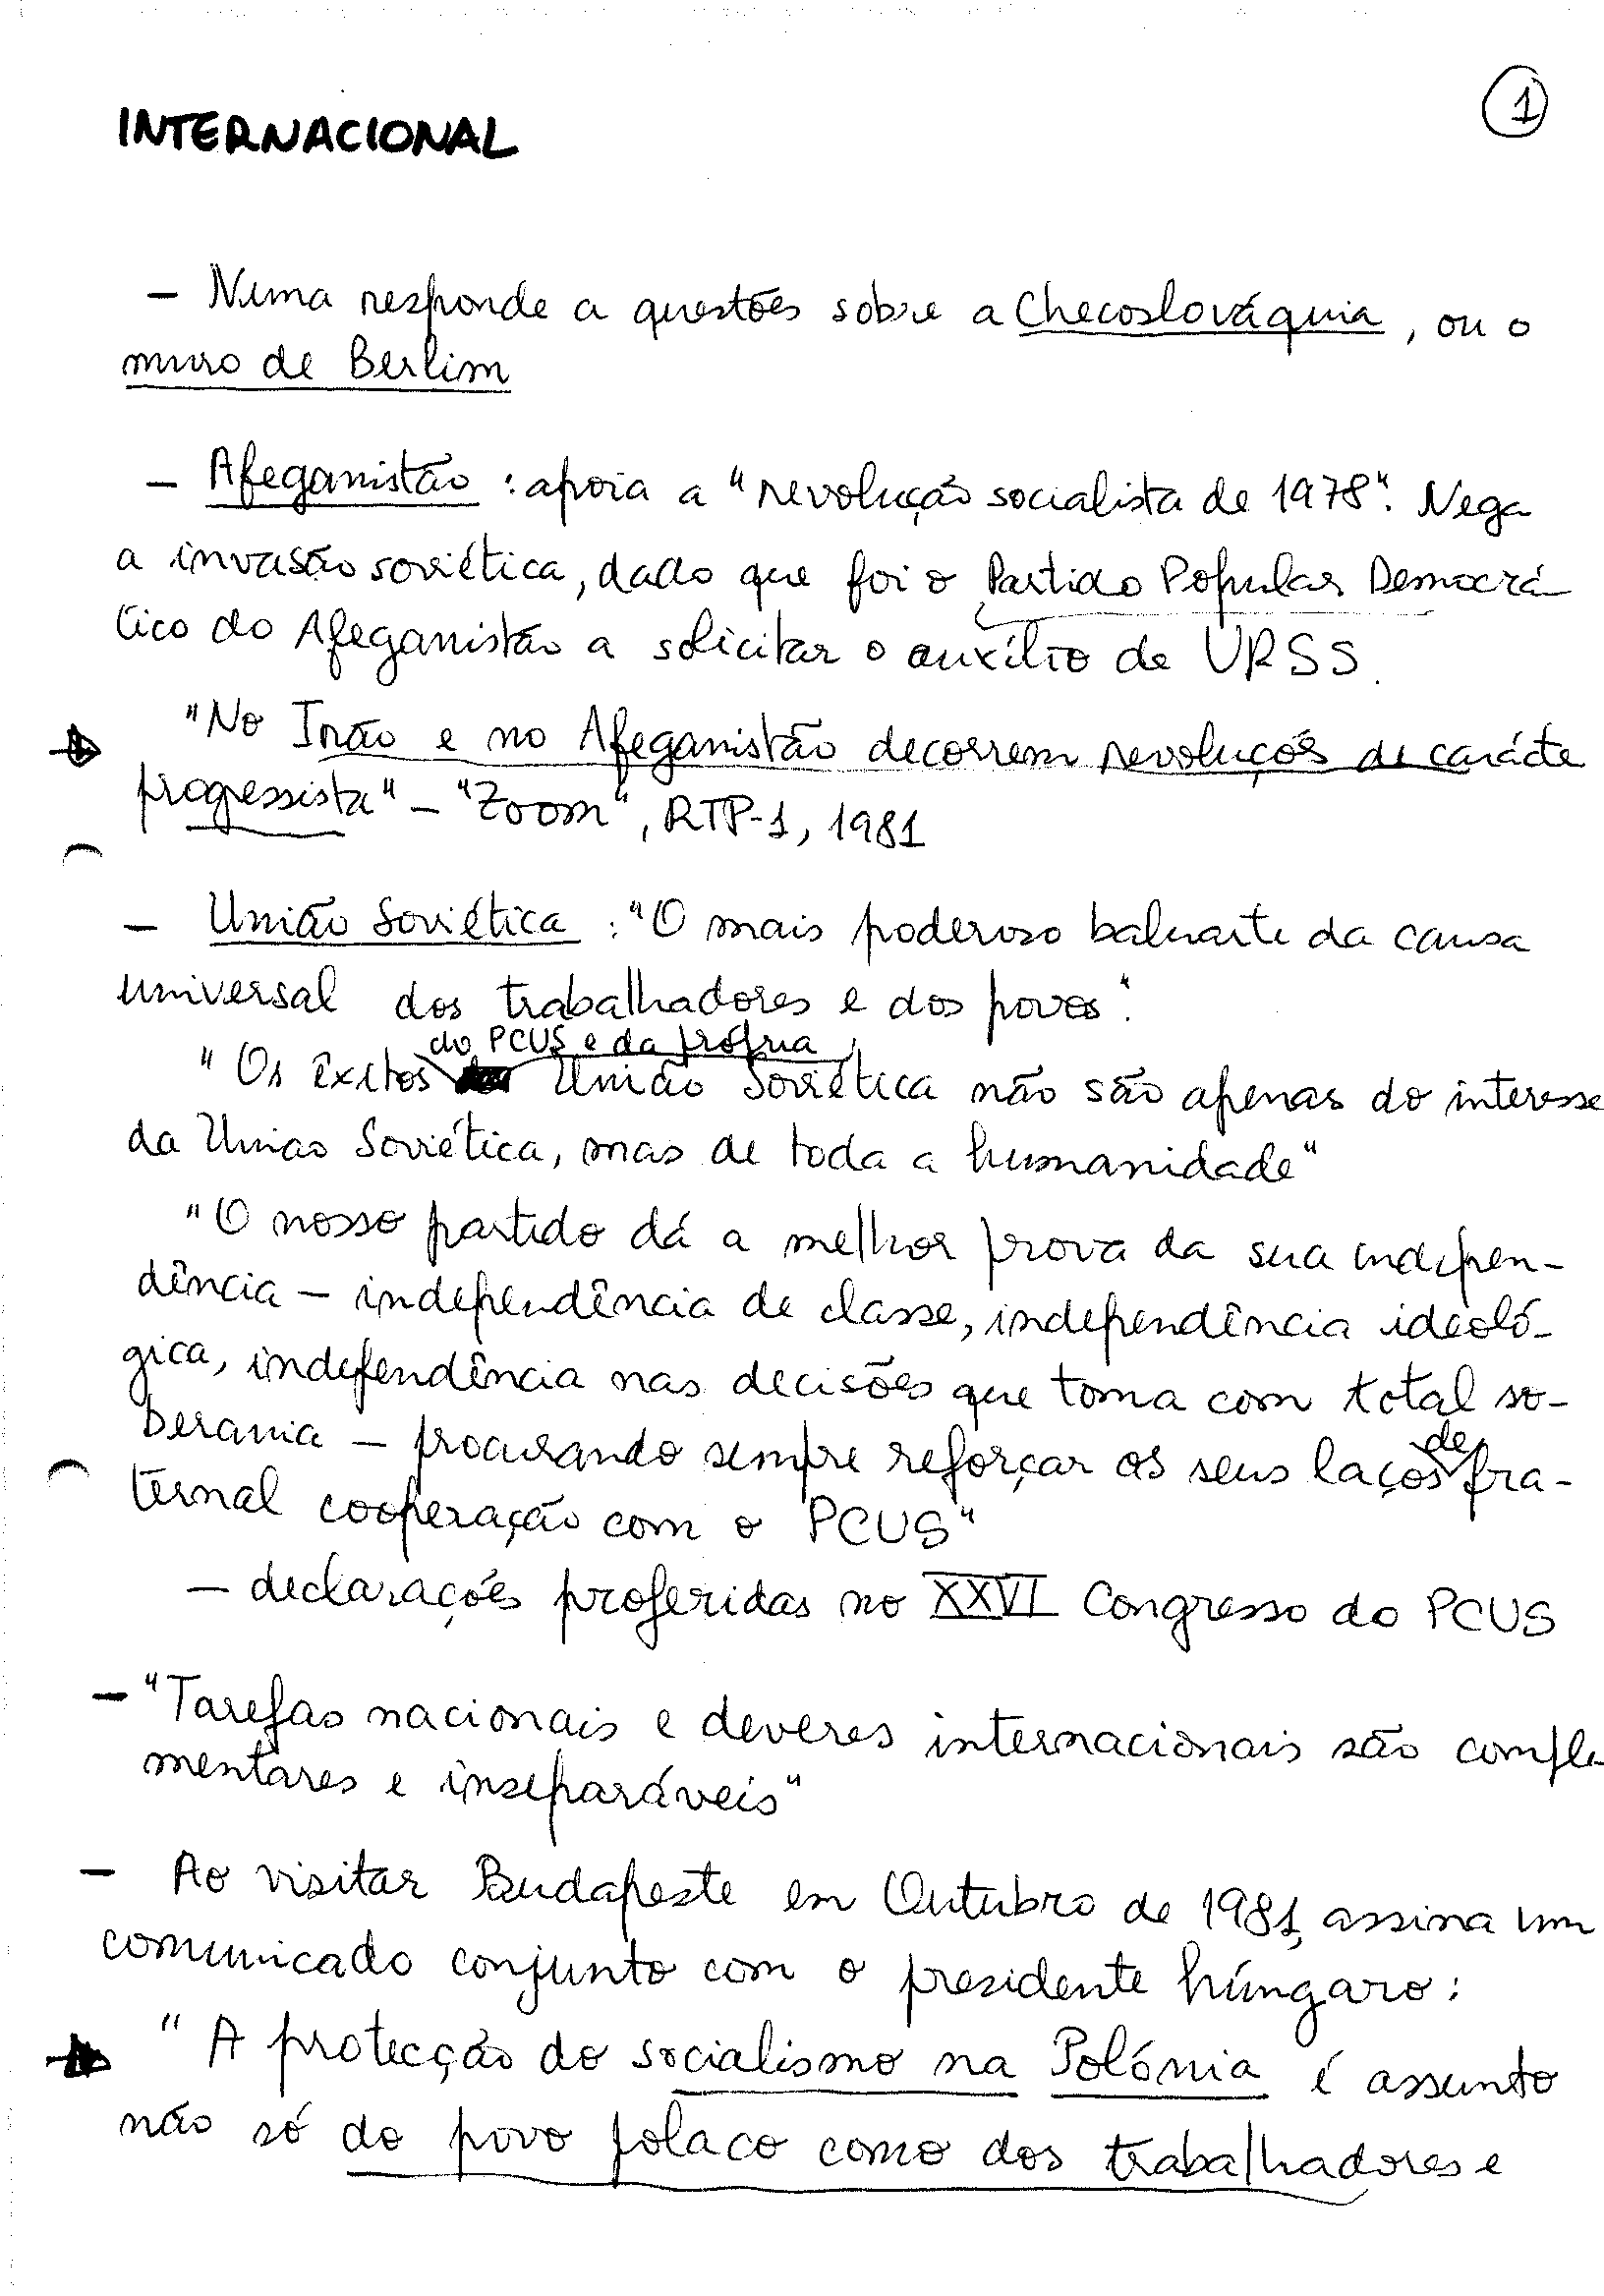 1
INTERNACIONAL
- Numa responde a questões sobre a Checoslováquia, ou o
muro de Berlim
- Afeganistão : apoia a "revolução socialista de 1978". Nega
a invasão soviética, dado que foi o Partido Popular Democrá-
tico do Afeganistão a solicitar o auxílio de URSS.
"No Irão e no Afeganistão decorrem revoluções de carácte
progessista" - "Zoom", RTP-1, 1981
- União Soviética : "O mais poderoso baluarte da causa
universal dos trabalhadores e dos povos".
do PCUS e da própria
"Os êxitos União Soviética não são apenas do interesse
da União Soviética, mas de toda a humanidade"
"O nosso partido dá a melhor prova da sua indepen-
dência - independência de classe, independência ideoló-
gica, independência nas decisões que toma com total so-
berania - procurando sempre reforçar os seus laços de fra-
ternal cooperação com o PCUS"
- declarações proferidas no XXVI Congresso do PCUS
- "Tarefas nacionais e deveres internacionais são comple
mentares e inseparáveis"
- Ao visitar Budapeste em Outubro de 1981, assina um
comunicado conjunto com o presidente húngaro:
"A protecção do socialismo na Polónia é assunto
não só do povo polaco como dos trabalhadores e